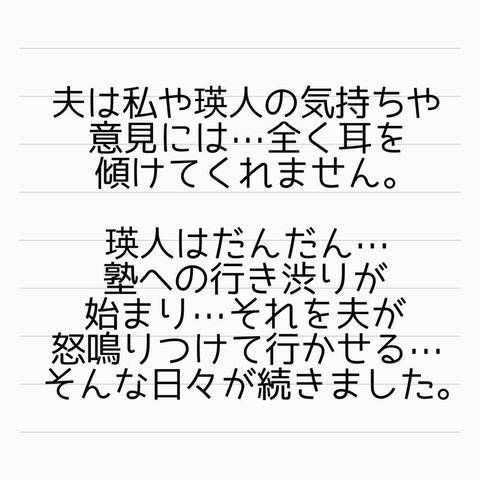 夫は私や瑛人の気持ちや
意見には…全く耳を
傾けてくれません。
瑛人はだんだん…
塾への行き渋りが
始まり…それを夫が
怒鳴りつけて行かせる…
そんな日々が続きました。